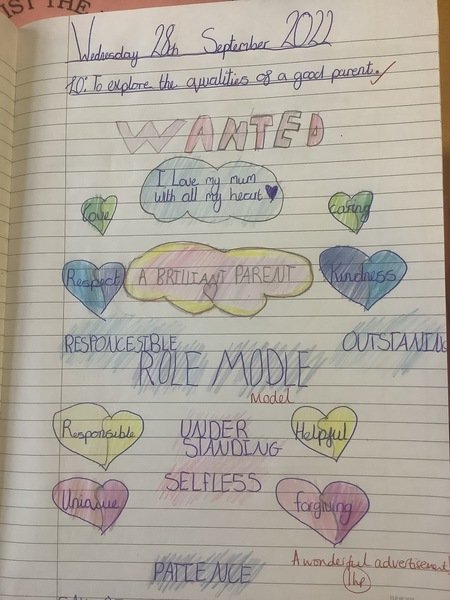 IST THE
Wednesday 28th September 2022
LO: To explore the qualities of a good parent.
WANTED
I Love my mum
with all my heart
Love
caring
Respect
A BRILLIANT PARENT
Kindness
RESPONCESIBLE
OUTSTANDING
ROLE MODLE
Model
Responsible
UNDER
STANDING
Helpful
SELFLESS
Unique
forgiving
PATIENCE
A wonderful advertisement!
1hp